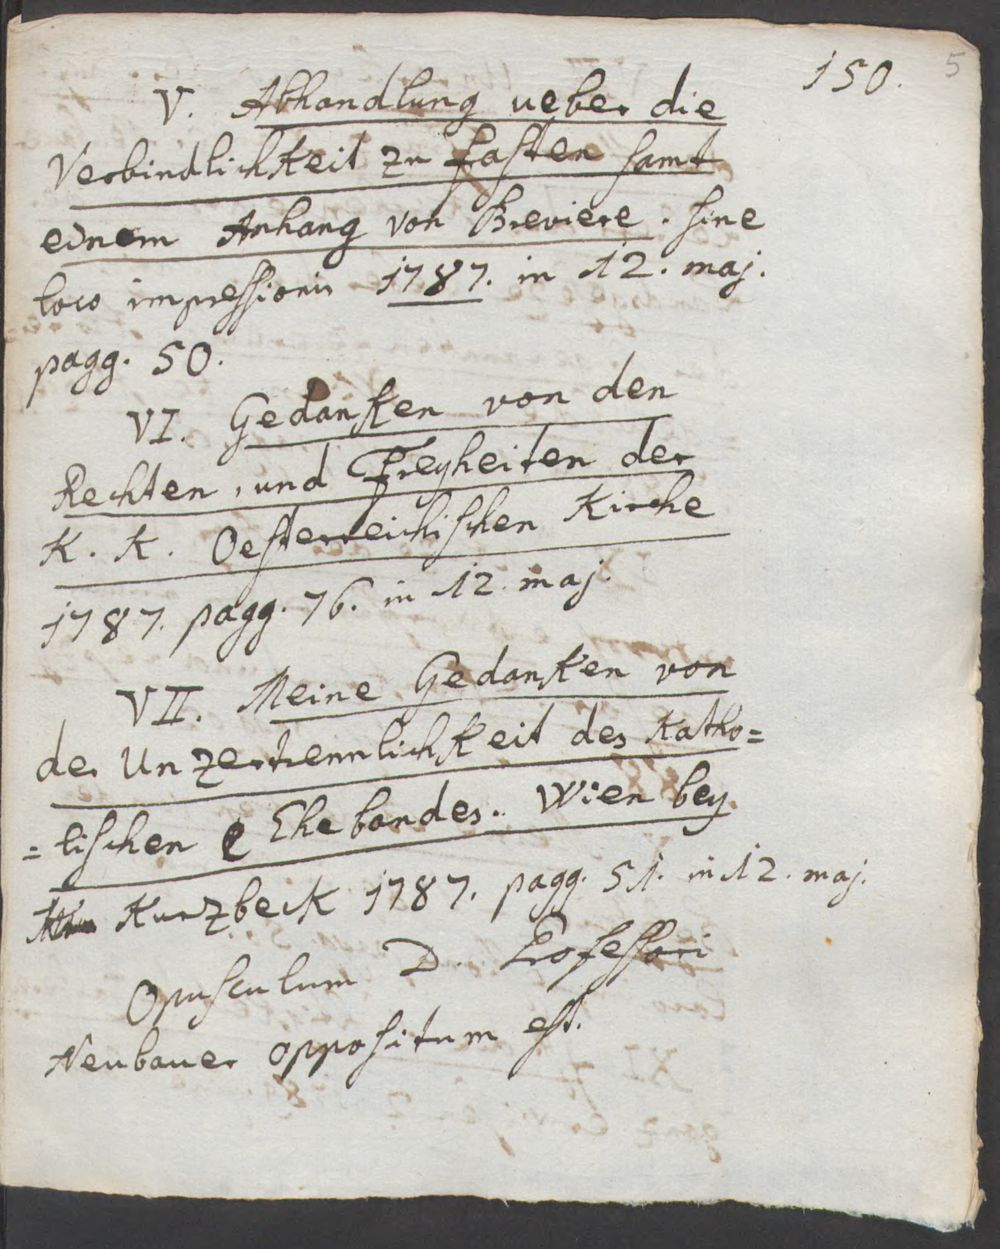 150. 5
V. Abhandlung ueber die
Verbindlichkeit zu fasten samt
einem Anhang von Breviere. sine
loco impressionis 1787. in 12. maj.
pagg. 50.
VI. Gedanken von den
Rechten, und Freyheiten der
K. K. Oesterreichischen Kirche
1787. pagg. 76. in 12. maj.
VII. Meine Gedanken von
der Unzertrennlichkeit des Katho=
=lischen Ehebandes. Wien bey
Kurzbeck 1787. pagg. 51. in 12. maj.
Opusculum D. Professori
Neubauer oppositum est.